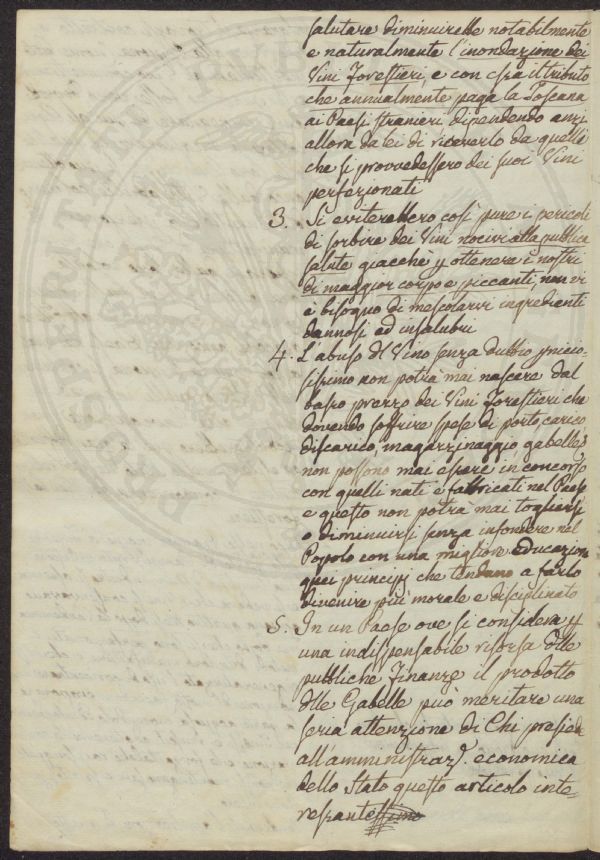 salutare diminuirebbe notabilmente
e naturalmente l'inondazione dei
Vini Forestieri, e con essa il tributo
che annualmente paga la Toscana
ai Paesi stranieri, dipendendo anzi
allora da lei di riceverlo da quelli
che si provvedessero dei suoi Vini
perfezionati
3. Si eviterebbero così pure i pericoli
di sorbire dei Vini nocivi alla pubblica
salute giacchè p ottenere i nostri
di maggior corpo e piccanti, non vi
è bisogno di mescolarvi ingredienti
dannosi ed insalubri
4. L'abuso dl Vino senza dubbio pnicio-
sissimo non potrà mai nascere dal
basso prezzo dei Vini Forestieri che
dovendo soffrire spese di porto, carico
discarico, magazzinaggio, gabelle &
non possono mai essere in concorso
con quelli nati e fabbricati nel Paese
e questo non potrà mai togliersi
o diminuirsi senza infondere nel
Popolo con una migliore educazione
quei principj che tendano a farlo
divenire più morale e disciplinato
5. In un Paese ove si considera p
una indispensabile risorsa dlle
pubbliche Finanze il prodotto
dlle Gabelle può meritare una
seria attenzione di Chi presiede
all'amministraz.e economica
dello Stato questo articolo inte-
ressant